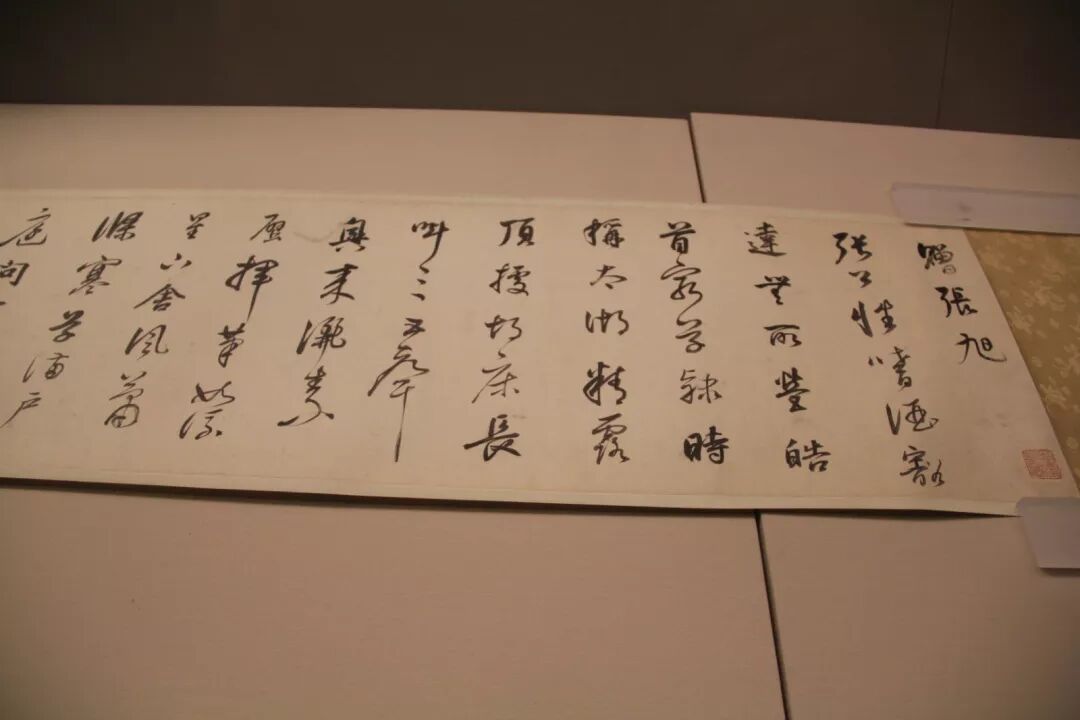 贈張旭
張公性嗜酒豁
達無所營皓
首窮草隸時
稱太湖精露
頂據胡床長
叫三五聲
興來灑素
壁揮筆如流
星下舍風蕭
條寒草滿戶
庭問